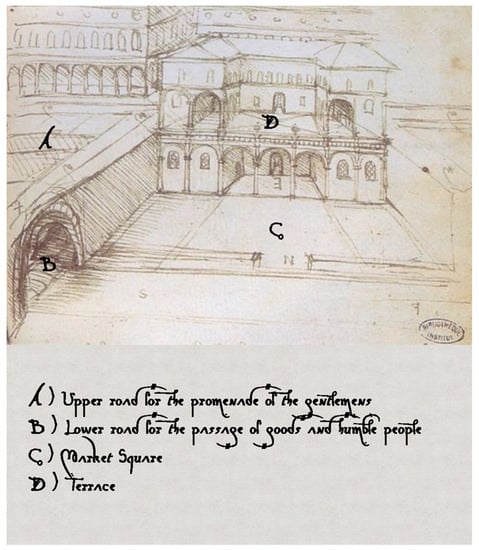 A
D
C
B
N
S
BIBLIOTHÈQUE
INSTITUT
A) Upper road for the promenade of the gentlemens
B) Lower road for the passage of goods and humble people
C) Market Square
D) Terrace